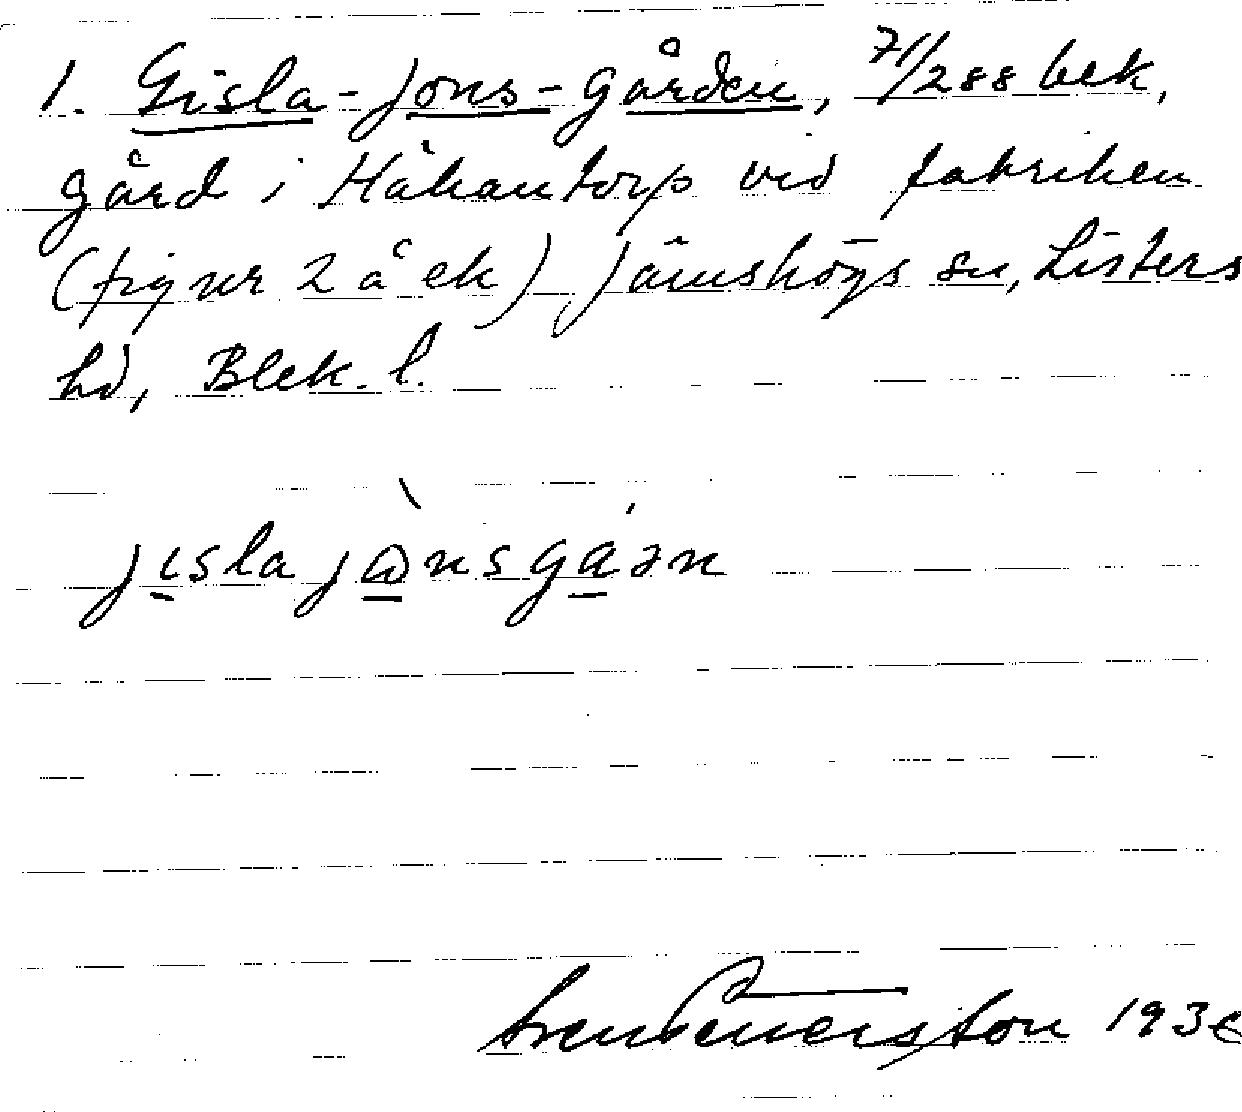 1. Gisla-Jons-gården, 71/288 bek,
gård i Håkantorp vid fabriken
(figur 2 å ek) Jämshögs sn, Listers
hd, Blek. l.
jislajånsgáən
Sven 193